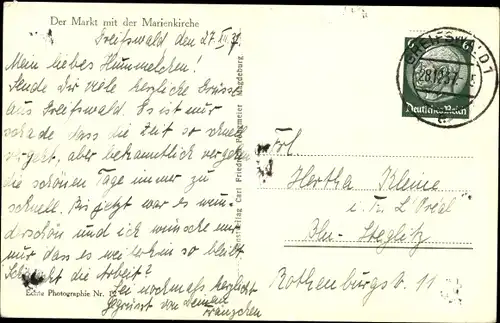 Der Markt mit der Marienkirche
Greifswald den 27.XII.37.
Mein liebes Hummelchen!
Sende Dir viele herzliche Grüsse
aus Greifswald. Es ist nur
schade dass die Zeit so schnell
vergeht, aber bekanntlich vergehen
die schönen Tage immer zu
schnell. Bis jetzt war es wun-
derschön und ich wünsche mir
nur dass es weiterhin so bleibt.
Schmeckt die Arbeit?
Sei nochmals herzlichst
gegrüsst von Deinem
Fränzchen
Echte Photographie Nr.
Verlag Carl Friedrich Magdeburg
GREIFSWALD 1
28.12.37
6
Deutsches Reich
Frl
Hertha Kleine
i. Fa. L'Oréal
Bln-Steglitz
Rothenburgstr. 11